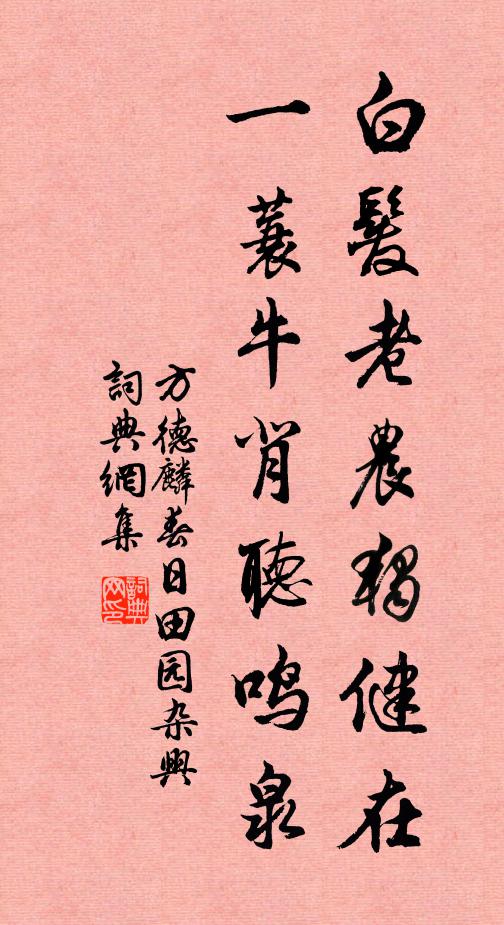 白髮老農獨健在
一蓑牛背聽鳴泉
方德麟春日田园杂興
詞典網集
詞典網印